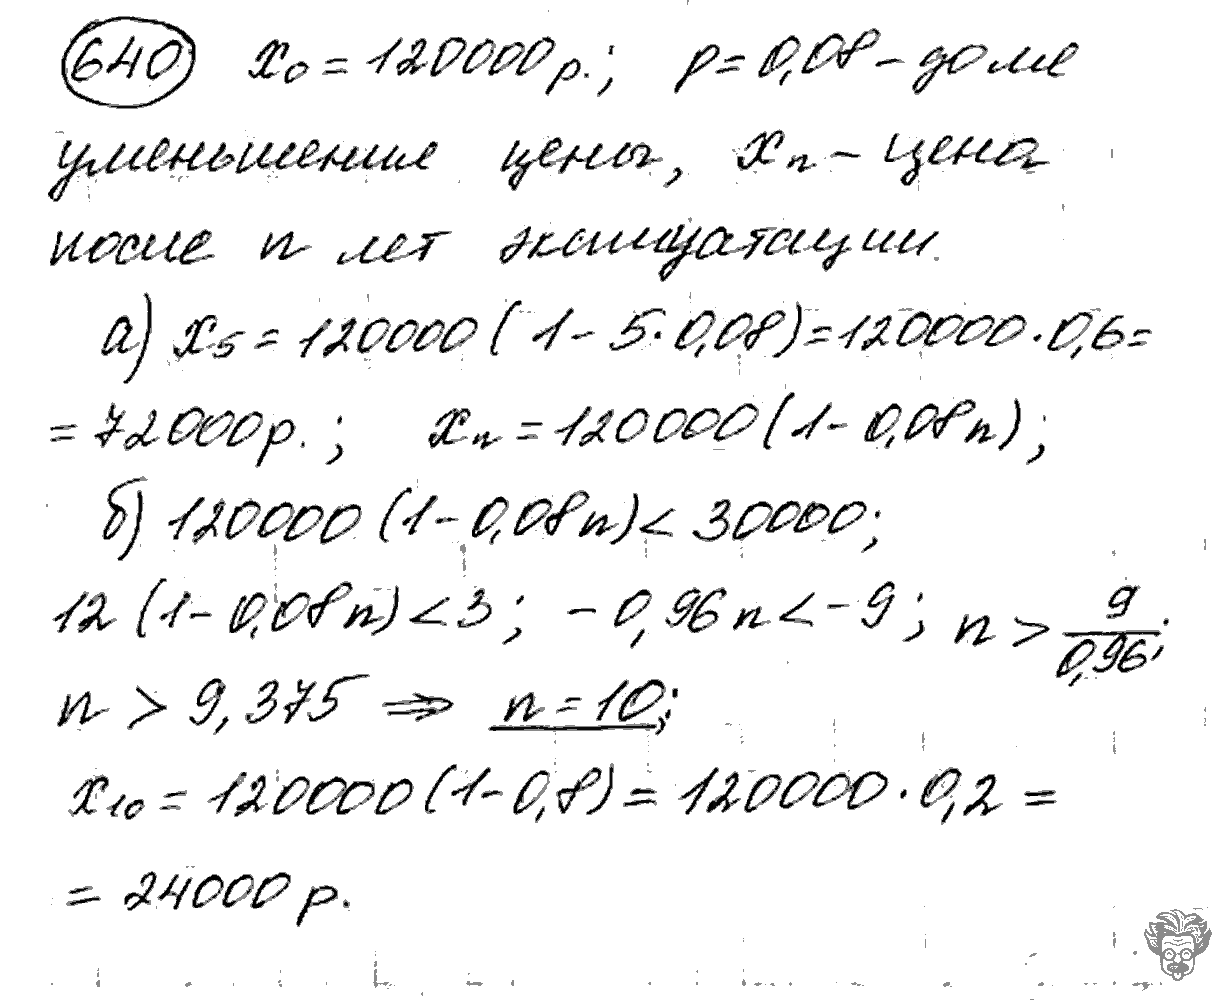 640 x₀ = 120000 р.; p = 0,08 – доля
уменьшения цены, xₙ – цена
после n лет эксплуатации.
а) x₅ = 120000 (1 – 5·0,08) = 120000·0,6 =
= 72000 р.; xₙ = 120000 (1 – 0,08n);
б) 120000 (1 – 0,08n) < 30000;
12 (1 – 0,08n) < 3; – 0,96n < – 9; n > 9/0,96;
n > 9,375 ⇒ n = 10;
x₁₀ = 120000 (1 – 0,8) = 120000·0,2 =
= 24000 р.